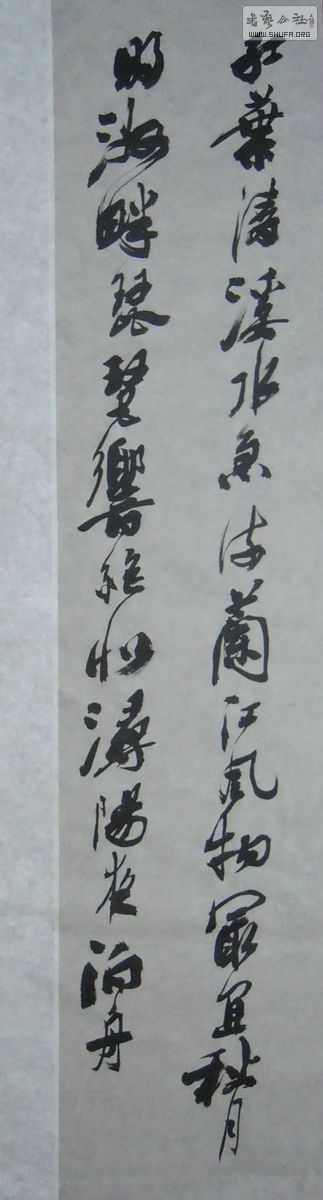 書藝公社
WWW.SHUFA.ORG
紅葉清溪水急流蘭江風物最宜秋月
明沙畔琵琶響絕似潯陽夜泊舟